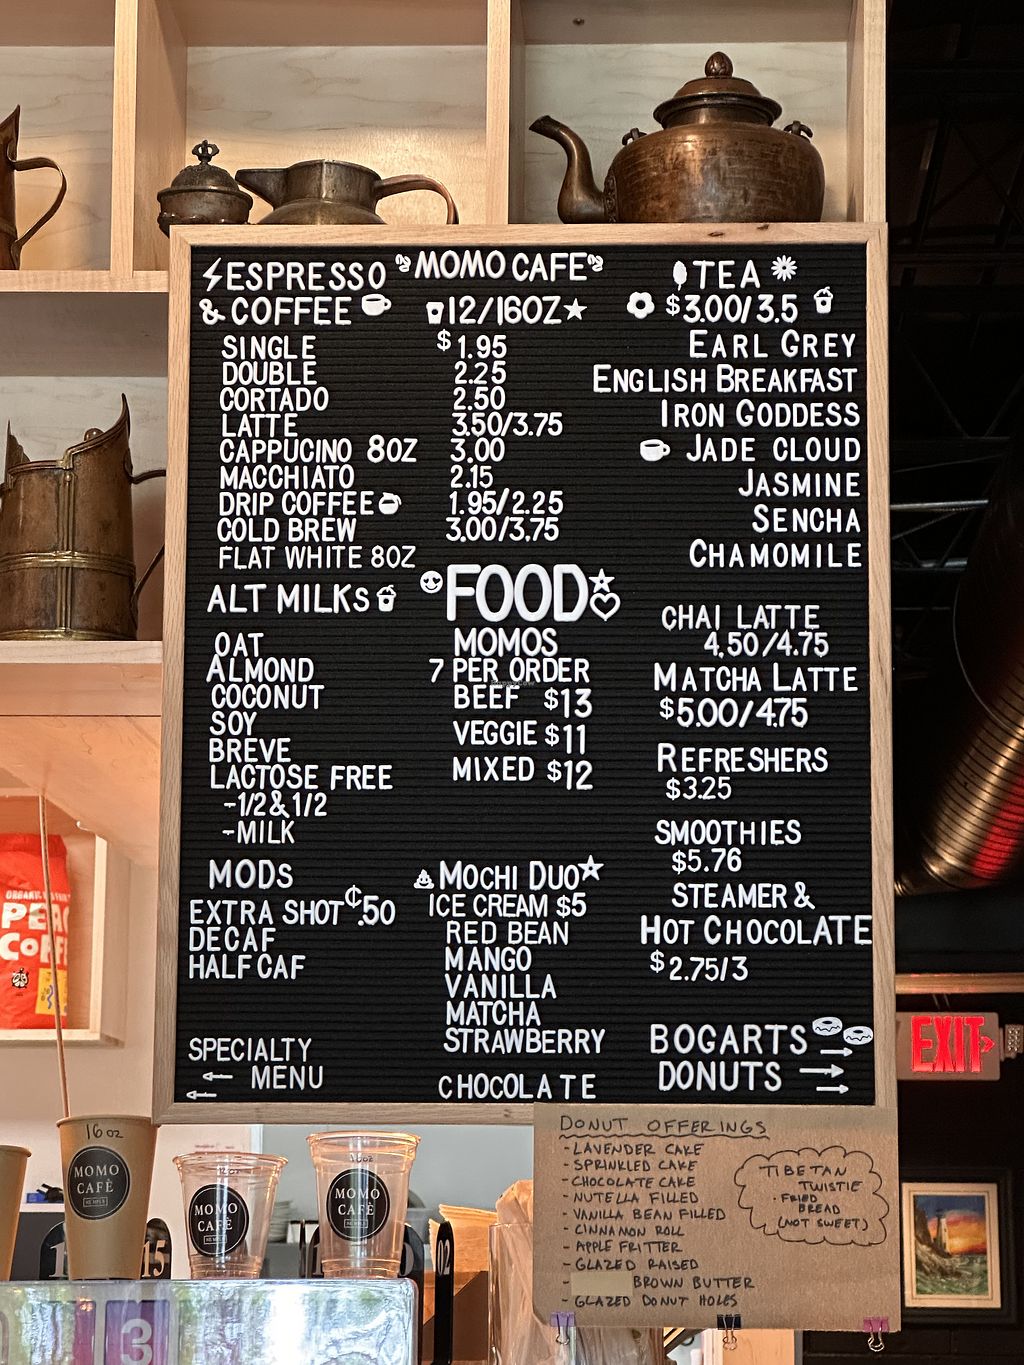 MOMO CAFE
ESPRESSO
& COFFEE
12/16OZ
SINGLE $1.95
DOUBLE 2.25
CORTADO 2.50
LATTE 3.50/3.75
CAPPUCINO 8OZ 3.00
MACCHIATO 2.15
DRIP COFFEE 1.95/2.25
COLD BREW 3.00/3.75
FLAT WHITE 8OZ
ALT MILKS
OAT
ALMOND
COCONUT
SOY
BREVE
LACTOSE FREE
-1/2&1/2
-MILK
MODS
EXTRA SHOT ¢.50
DECAF
HALF CAF
SPECIALTY
MENU
FOOD
MOMOS
7 PER ORDER
BEEF $13
VEGGIE $11
MIXED $12
MOCHI DUO
ICE CREAM $5
RED BEAN
MANGO
VANILLA
MATCHA
STRAWBERRY
CHOCOLATE
TEA
$3.00/3.5
EARL GREY
ENGLISH BREAKFAST
IRON GODDESS
JADE CLOUD
JASMINE
SENCHA
CHAMOMILE
CHAI LATTE
4.50/4.75
MATCHA LATTE
$5.00/4.75
REFRESHERS
$3.25
SMOOTHIES
$5.76
STEAMER &
HOT CHOCOLATE
$2.75/3
BOGARTS
DONUTS
DONUT OFFERINGS
- LAVENDER CAKE
- SPRINKLED CAKE
- CHOCOLATE CAKE
- NUTELLA FILLED
- VANILLA BEAN FILLED
- CINNAMON ROLL
- APPLE FRITTER
- GLAZED RAISED
- BROWN BUTTER
- GLAZED DONUT HOLES
TIBETAN
TWISTIE
- FRIED
BREAD
(NOT SWEET)
EXIT
16 oz
MOMO
CAFÈ
12 oz
MOMO
CAFÈ
16 oz
MOMO
CAFÈ
15
02
3